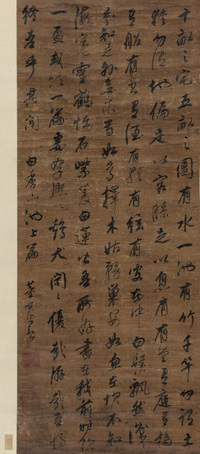 十畝之宅五畝之園有水一池有竹千竿勿謂土
狹勿謂地偏足以容膝足以息肩有堂有庭有橋
有船有書有酒有歌有絃有叟在中白鬚飄然識
分知足外無求焉如鳥擇木姑務巢安如魚在坎不知
海寬靈鶴怪石紫菱白蓮皆吾所好盡在我前時飲
一盃或吟一篇妻孥熙〻雞犬閒〻優哉游哉吾將
終老乎其間 白香山池上篇 董其昌書